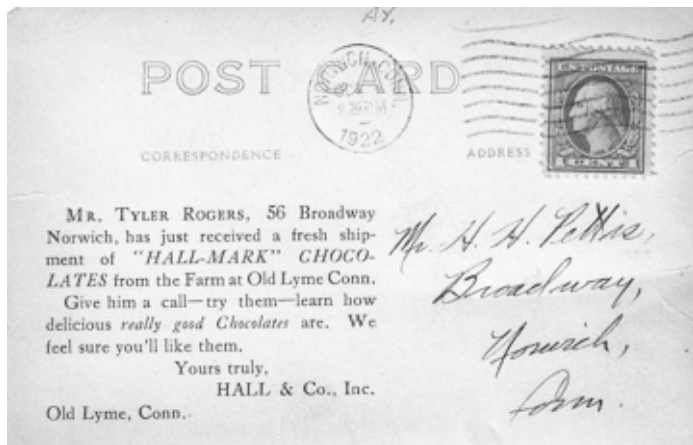 POST CARD
NORWICH, CONN.
1922
U.S. POSTAGE
CENT
CORRESPONDENCE
ADDRESS
MR. TYLER ROGERS, 56 Broadway
Norwich, has just received a fresh ship-
ment of "HALL-MARK" CHOCO-
LATES from the Farm at Old Lyme Conn.
Give him a call—try them—learn how
delicious really good Chocolates are. We
feel sure you'll like them.
Yours truly,
HALL & Co., Inc.
Old Lyme, Conn.
Mr. H. H. Pettis,
Broadway,
Norwich,
Conn.